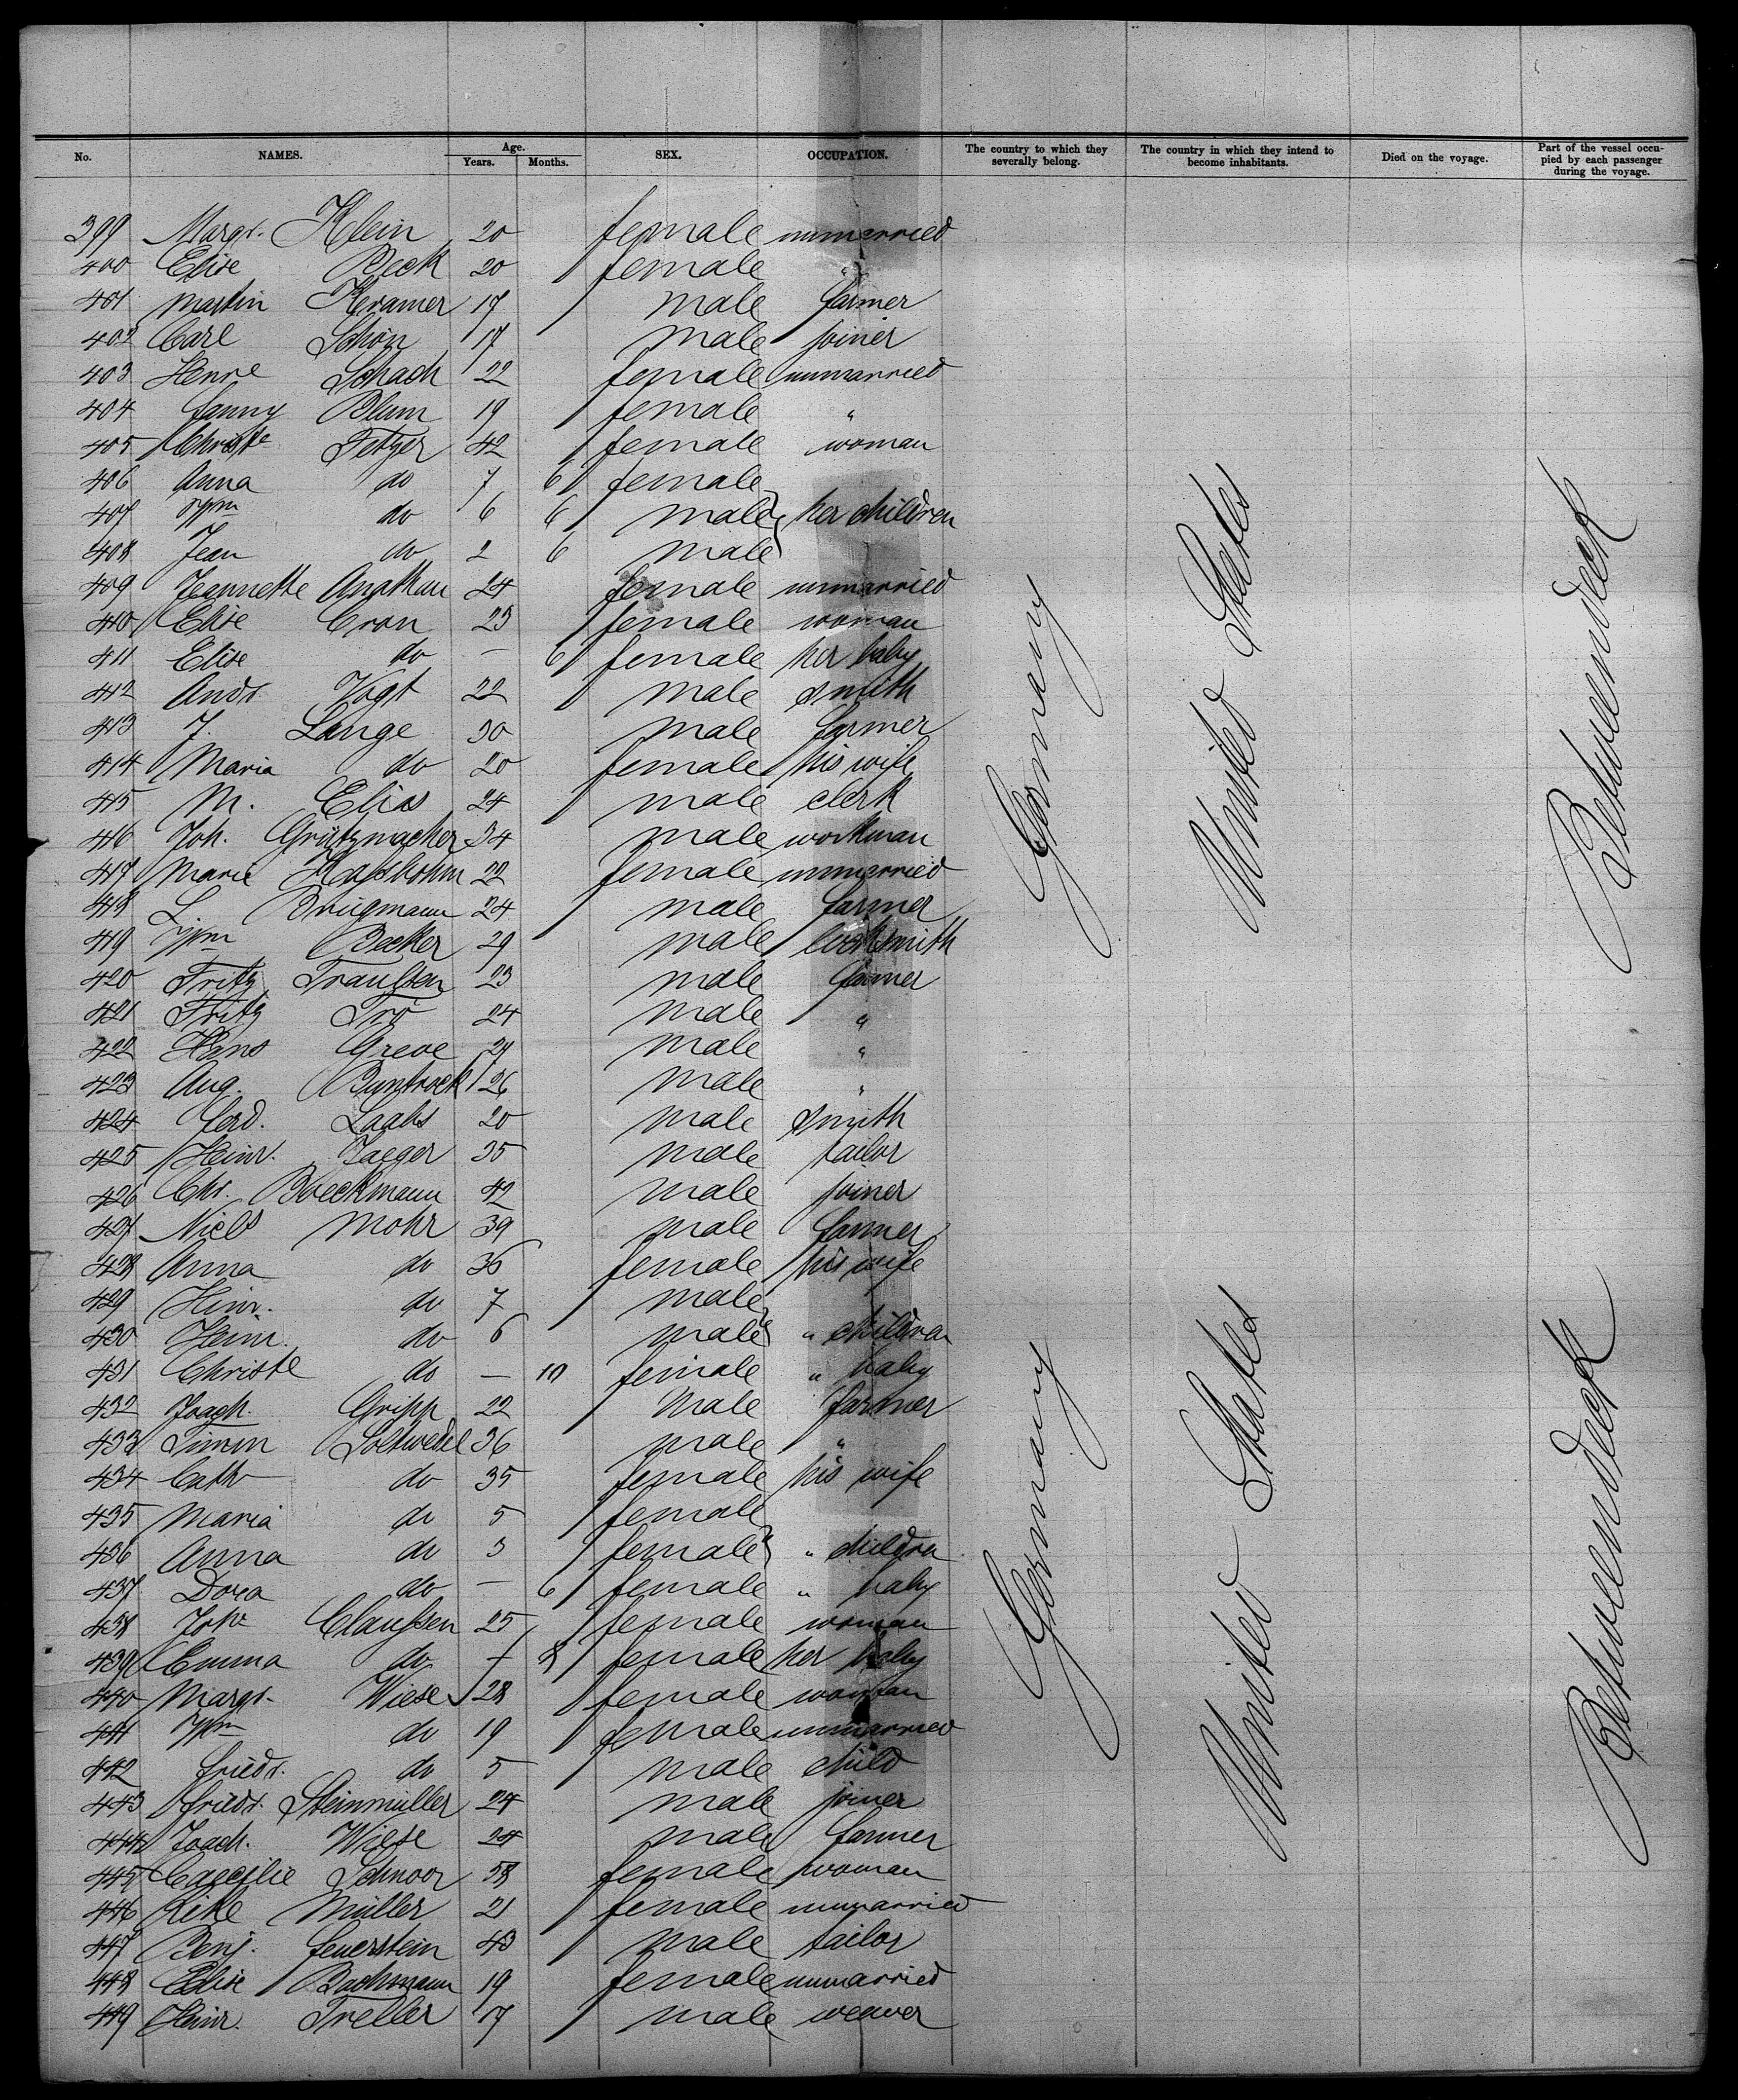 No. NAMES. Age. Years. Months. SEX. OCCUPATION. The country to which they severally belong. The country in which they intend to become inhabitants. Died on the voyage. Part of the vessel occupied by each passenger during the voyage.
399 Margr. Klein 20 female unmarried
400 Elise Beck 20 female "
401 Martin Kramer 17 male farmer
402 Carl Schön 17 male joiner
403 Henre Schach 22 female unmarried
404 Fanny Blum 19 female "
405 Christe Fetzer 42 female woman
406 Anna do 7 6 female
407 Wm do 6 6 male her children
408 Jean do 2 6 male
409 Jeannette 24 female unmarried
410 Elise Cron 23 female woman
411 Elise do — 6 female her baby
412 Andr. Vogt 22 male smith
413 J. Lange 30 male farmer
414 Maria do 20 female his wife
415 M. Elias 24 male clerk
416 Joh. Grützmacher 34 male workman
417 Marie 22 female unmarried
418 L. Brügmann 24 male farmer
419 Wm Becker 29 male locksmith
420 Fritz Traulsen 23 male farmer
421 Fritz 24 male "
422 Hans Greve 27 male "
423 Aug. Buntrock 26 male "
424 Ferd. Laabs 20 male smith
425 Heinr. Jaeger 35 male tailor
426 Chr. Boeckmann 42 male joiner
427 Niels Mohr 39 male farmer
428 Anna do 36 female his wife
429 Hinr. do 7 male
430 Heinr. do 6 male " children
431 Christe do — 10 female " baby
432 Joach. Gripp 22 male farmer
433 Simon Soltwedel 36 male "
434 Cath do 35 female his wife
435 Maria do 5 female
436 Anna do 3 female " children
437 Dora do — 6 female " baby
438 Joh Claussen 25 female woman
439 Emma do — 8 female her baby
440 Margr. Wiese 28 female woman
441 Wm do 19 female unmarried
442 Friedr. do 5 male child
443 Friedr. Steinmüller 24 male joiner
444 Joach. Wiese 24 male farmer
445 Caecilie Schnoor 58 female woman
446 Rike Müller 21 female unmarried
447 Benj. Feuerstein 43 male tailor
448 Elise Bachmann 19 female unmarried
449 Heinr. Treller 17 male weaver
Germany United States Betweendeck
Germany United States Betweendeck